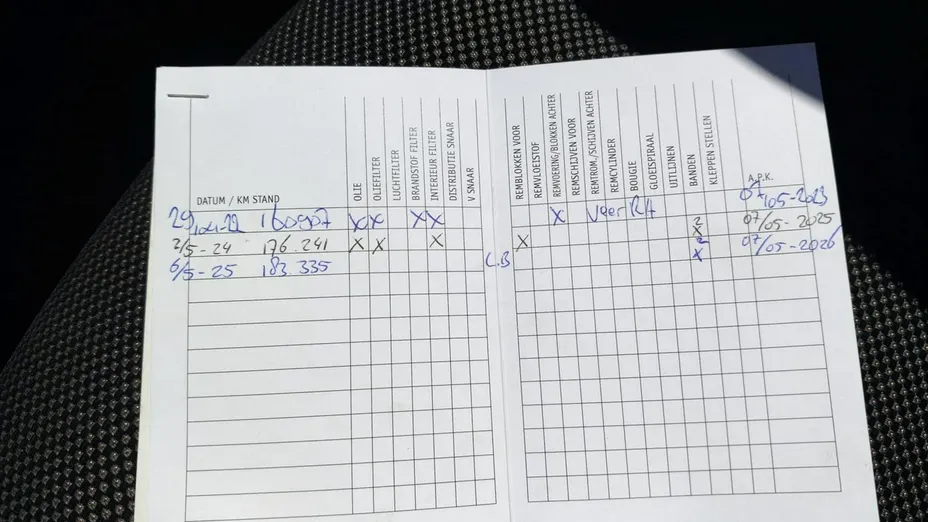 DATUM / KM STAND
OLIE
OLIEFILTER
LUCHTFILTER
BRANDSTOF FILTER
INTERIEUR FILTER
DISTRIBUTIE SNAAR
V SNAAR
REMBLOKKEN VOOR
REMVLOEISTOF
REMVOERING/BLOKKEN ACHTER
REMSCHIJVEN VOOR
REMTROM./SCHIJVEN ACHTER
REMCYLINDER
BOUGIE
GLOEISPIRAAL
UITLIJNEN
BANDEN
KLEPPEN STELLEN
A.P.K.
160907 X X X X X Veer RA 05-2023
2/5-24 176.241 X X X X 2 X 07/05-2025
6/5-25 183.335 C.B 2 X 07/05-2026